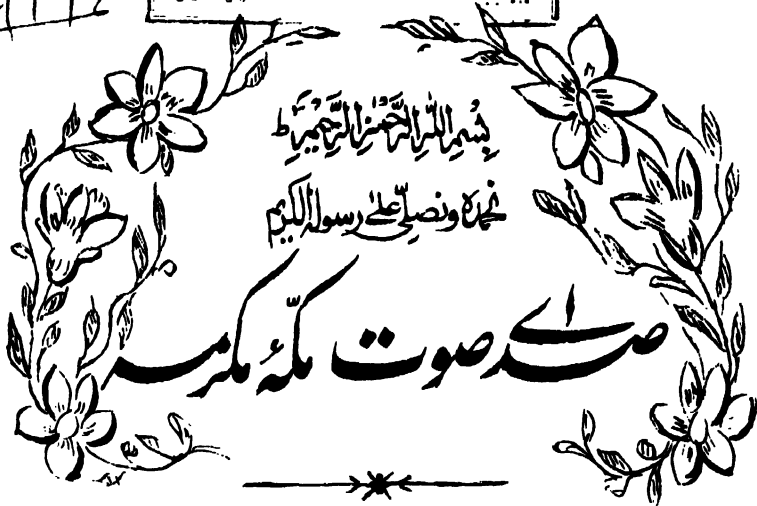 بِسْمِ اللّٰهِ الرَّحْمٰنِ الرَّحِيْمِ ط
نحمدہ ونصلّی علیٰ رسولہ الکریم
صدائے صوت مکّۂ مکرمہ